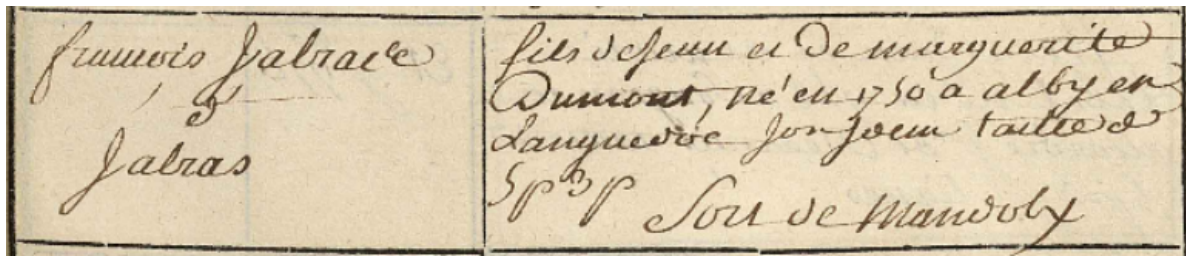 françois Jabrade
d
Jabras
fils de Jean et de marguerite
Dumont, né en 1750 a alby en
Languedoc Jon Jdem taille d
5 p 3 p
Sort de Mandoby